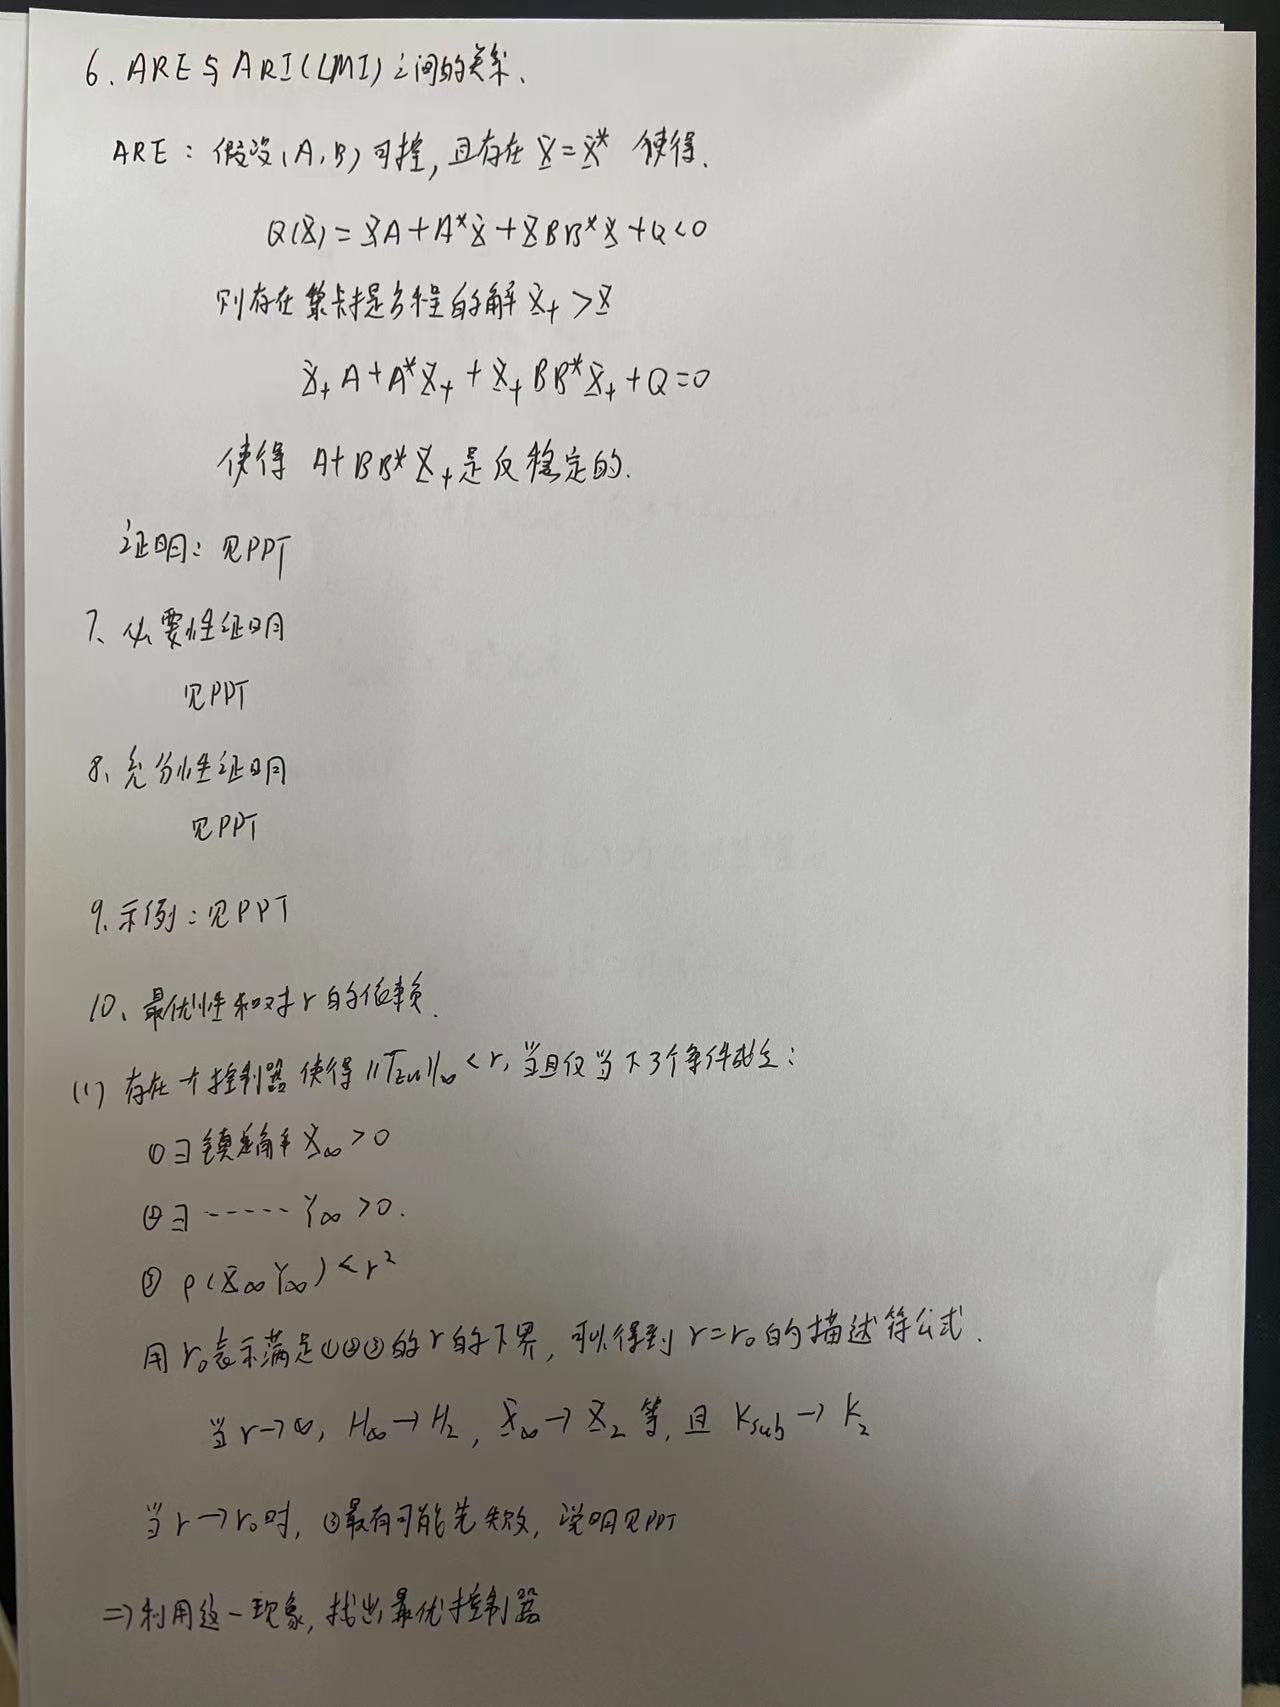 6、ARE与ARI(LMI)之间的关系、
ARE：假设(A,B)可控，且存在X=X* 使得、
Q(X)=XA+A*X+XBB*X+Q<0
则存在黎卡提方程的解X₊>X
X₊A+A*X₊+X₊BB*X₊+Q=0
使得 A+BB*X₊是反稳定的.
证明：见PPT
7、必要性证明
见PPT
8、充分性证明
见PPT
9、示例：见PPT
10、最优性和对r的依赖.
(1) 存在一个控制器使得||Tzw||∞<r，当且仅当下3个条件成立：
①∃镇定解X∞>0
②∃ ······ Y∞>0.
③ ρ(X∞Y∞)<r²
用r₀表示满足①②③的r的下界，可以得到r=r₀的描述符公式.
当r→∞, H∞→H₂, X∞→X₂等，且 Ksub→K₂
当r→r₀时，③最有可能先失败，说明见PPT
⇒利用这一现象，找出最优控制器